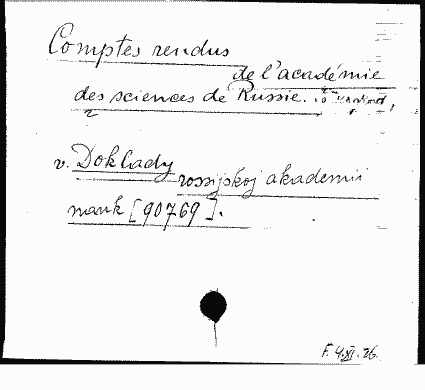 Comptes rendus
de l'académie
des sciences de Russie.
v. Doklady
rossijskoj akademii
nauk [90769].
F. 4.XI.26.